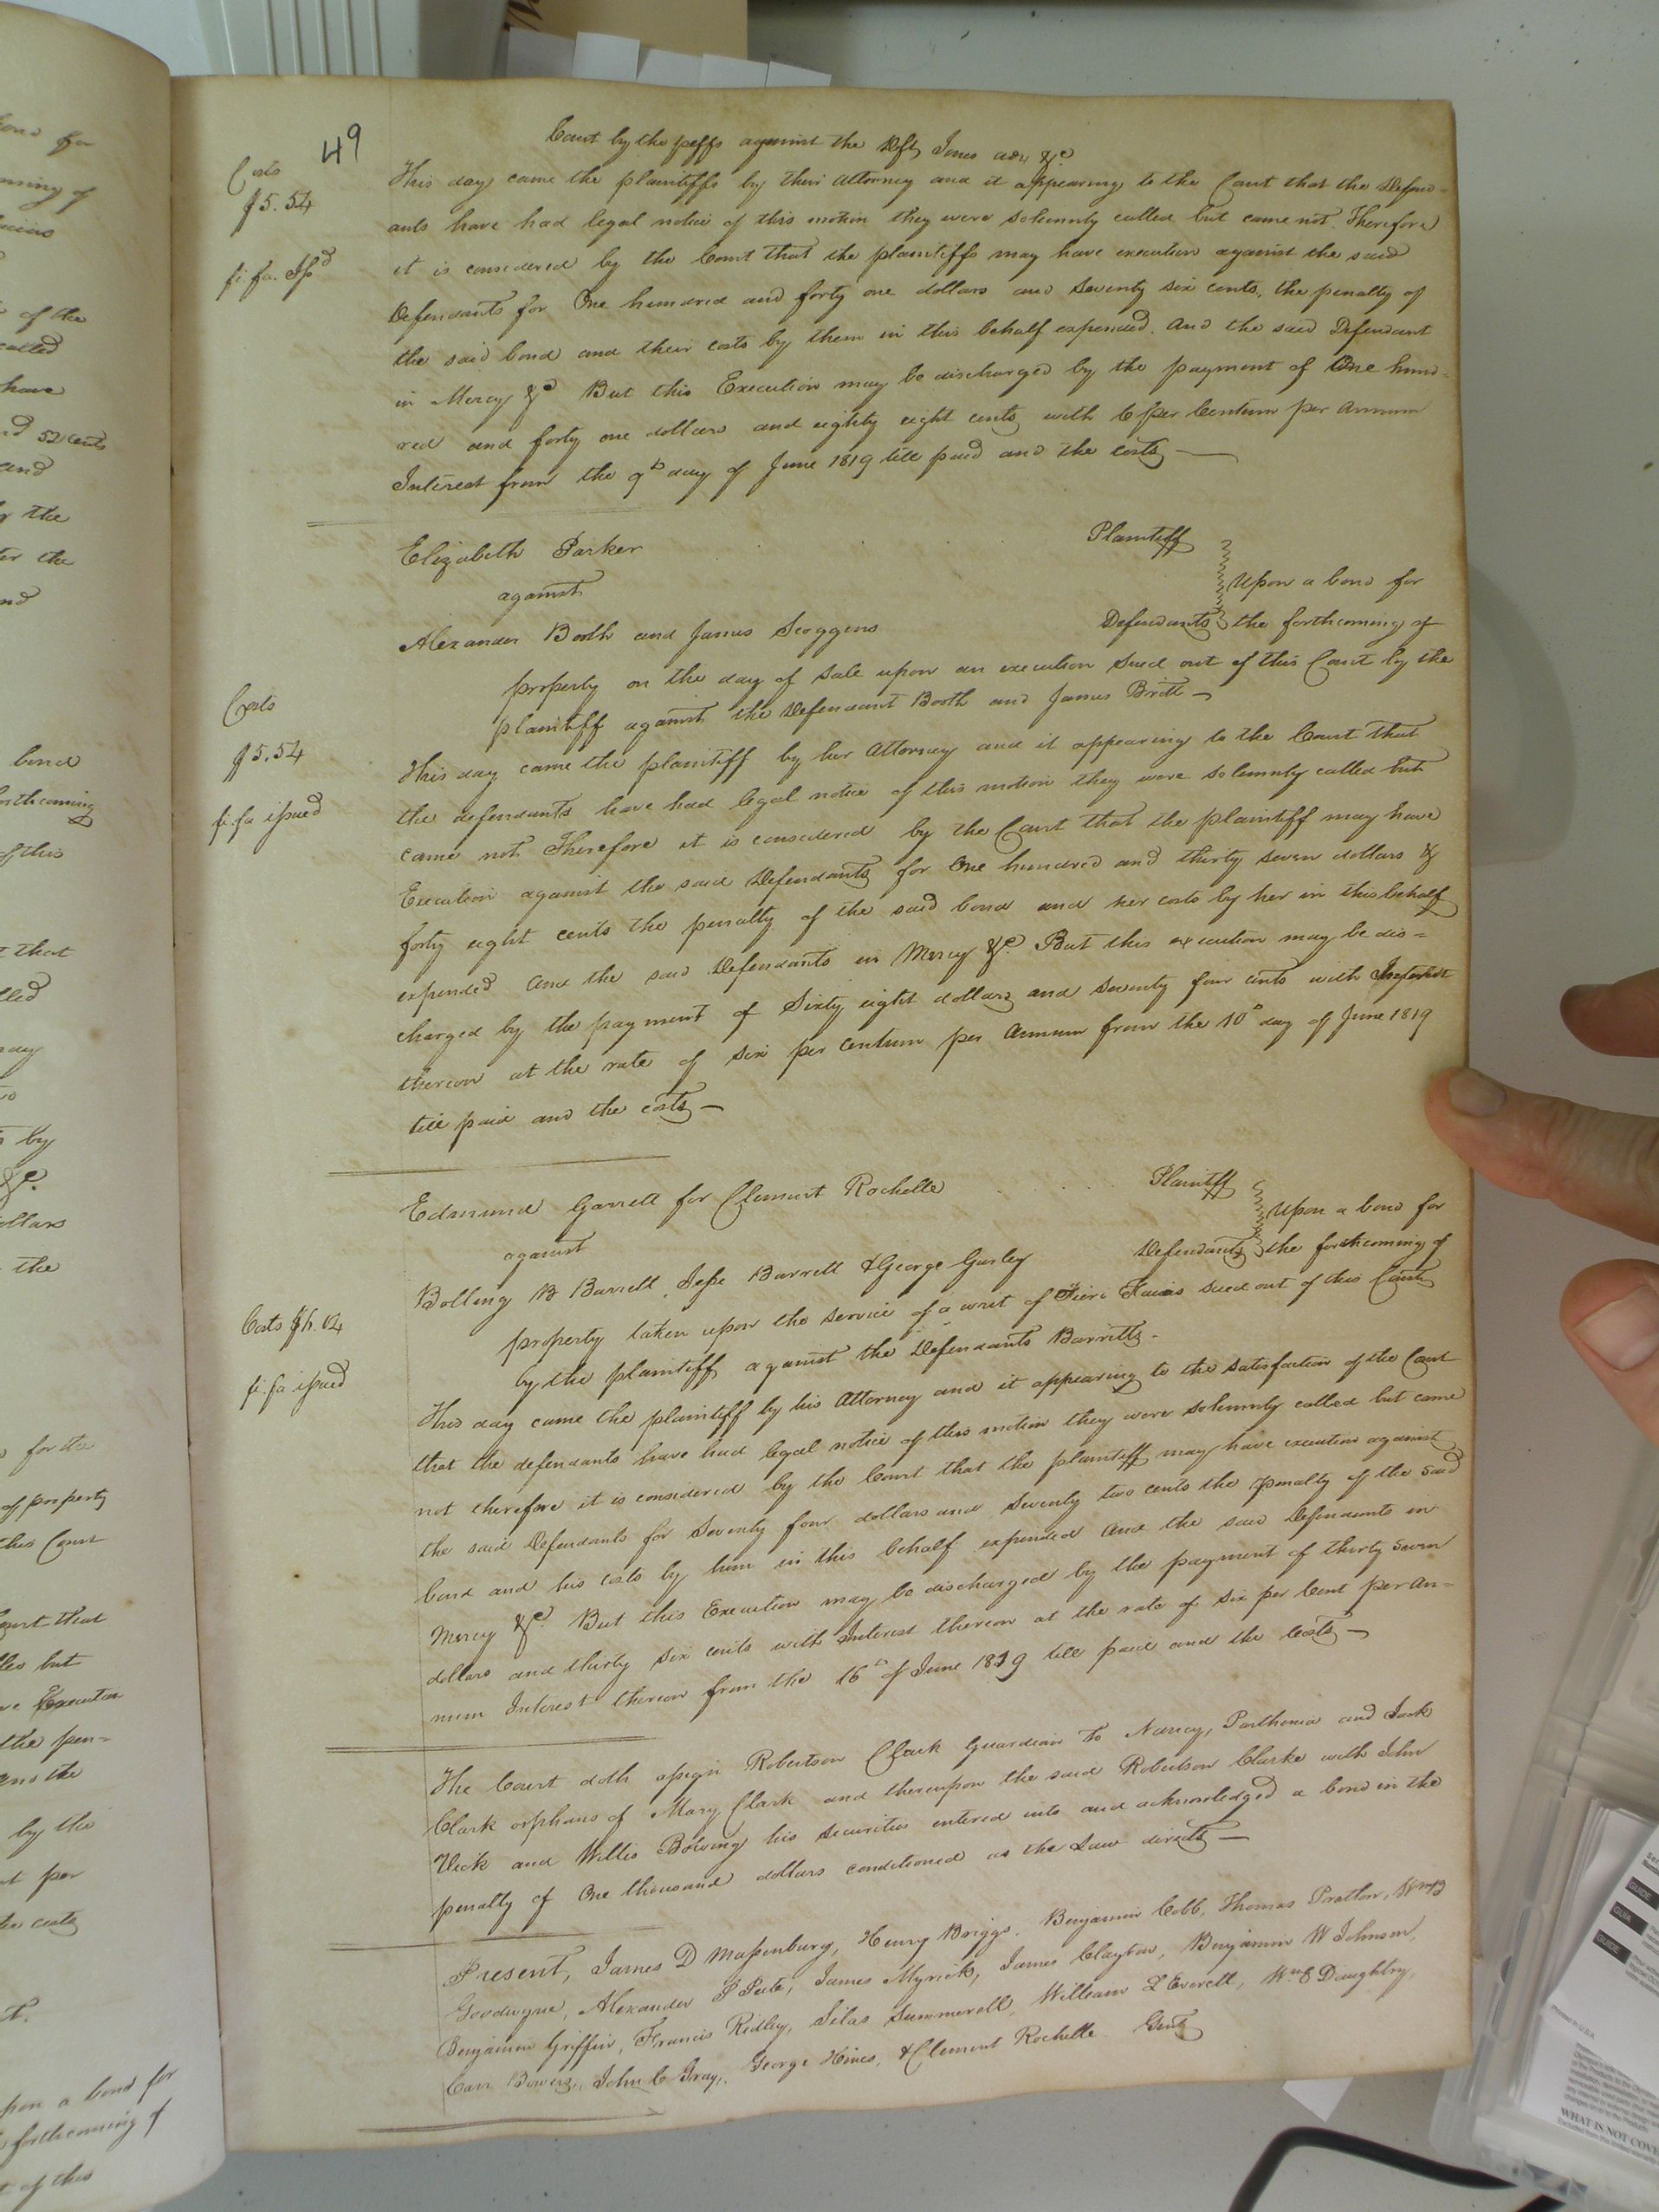 49
Court by the plffs against the Deft Jones adm &c
Costs
$5.54
fi. fa. Issd
This day came the plaintiffs by their attorney and it appearing to the Court that the Defend-
ants have had legal notice of this motion they were solemnly called but came not. Therefore
it is considered by the Court that the plaintiffs may have execution against the said
Defendants for One hundred and forty one dollars and seventy six cents, the penalty of
the said bond and their costs by them in this behalf expended. And the said Defendant
in Mercy &c But this Execution may be discharged by the payment of One hund-
red and forty one dollars and eighty eight cents with 6 per Centum per annum
Interest from the 9th day of June 1819 till paid and the costs —
Elizabeth Parker Plaintiff
against Upon a bond for
Alexander Booth and James Scoggens Defendants the forthcoming of
property on the day of sale upon an execution sued out of this Court by the
plaintiff against the Defendant Booth and James Britt —
Costs
$5.54
fi. fa issued
This day came the plaintiff by her Attorney and it appearing to the Court that
the defendants have had legal notice of this motion they were solemnly called but
came not Therefore it is considered by the Court that the plaintiff may have
Execution against the said Defendants for One hundred and thirty seven dollars &
forty eight cents the penalty of the said bond and her costs by her in this behalf
expended And the said Defendants in Mercy &c. But this execution may be dis=
charged by the payment of Sixty eight dollars and seventy four cents with Interest
thereon at the rate of six per centum per Annum from the 10th day of June 1819
till paid and the costs —
Edmund Garrett for Clement Rochelle Plaintiff
against Upon a bond for
Bolling B Barrett, Jesse Barrett & George Gurley Defendants the forthcoming of
property taken upon the service of a writ of Fieri Facias sued out of this Court
by the plaintiff against the Defendants Barretts -
Costs
fi. fa issued
This day came the plaintiff by his Attorney and it appearing to the satisfaction of the Court
that the defendants have had legal notice of this motion they were solemnly called but came
not therefore it is considered by the Court that the plaintiff may have execution against
the said Defendants for Seventy four dollars and Seventy two cents the penalty of the said
bond and his costs by him in this behalf expended And the said Defendants in
Mercy &c. But this Execution may be discharged by the payment of thirty seven
dollars and thirty six cents with Interest thereon at the rate of six per Cent per an-
num Interest thereon from the 16th of June 1819 till paid and the Costs —
The Court doth assign Robertson Clark Guardian to Nancy, Parthenia and Jack
Clark orphans of Mary Clark and thereupon the said Robertson Clarke with John
Vick and Willis Bowing his securities entered into and acknowledged a bond in the
penalty of One thousand dollars conditioned as the Law directs —
Present, James D Massenburg, Henry Briggs, Benjamin Cobb, Thomas Pretlow, Wm B
Goodwyne, Alexander P Peete, James Myrick, James Clayton, Benjamin W Johnson,
Benjamin Griffin, Francis Ridley, Silas Summerell, William Z Everett, Wm C Daughtry,
Carr Bowers, John C Gray, George Hines, & Clement Rochelle Gent